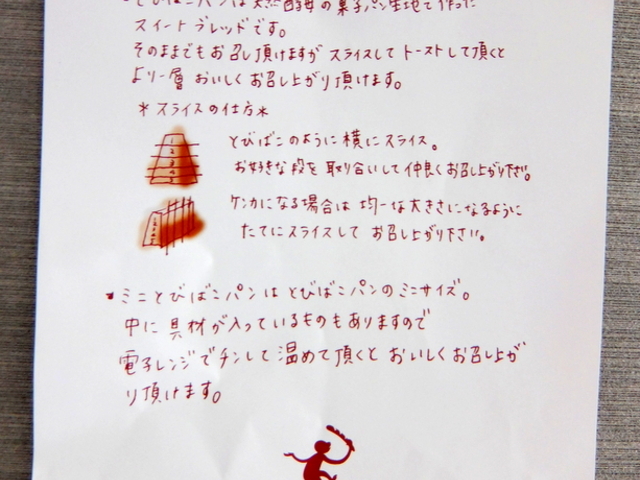 とびばこパンは天然酵母の菓子パン生地で作った
スイートブレッドです。
そのままでもお召し頂けますがスライスしてトーストして頂くと
より一層おいしくお召し上がり頂けます。
*スライスの仕方*
とびばこのように横にスライス。
お好きな段を取り合いして仲良くお召し上がり下さい。
ケンカになる場合は均一な大きさになるように
たてにスライスしてお召し上がり下さい。
・ミニとびばこパンはとびばこパンのミニサイズ。
中に具材が入っているものもありますので
電子レンジでチンして温めて頂くとおいしくお召し上が
り頂けます。